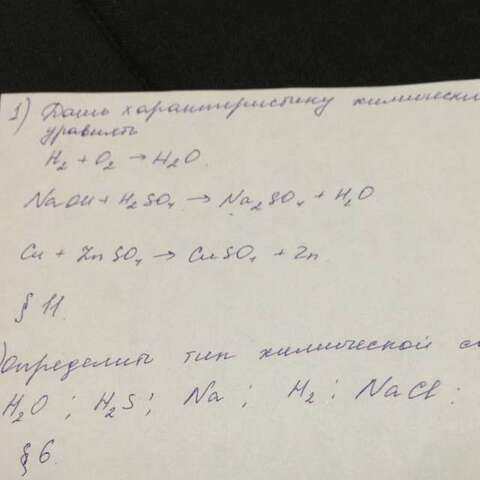 1) Дать характеристику химически
уравнять
H₂ + O₂ → H₂O
NaOH + H₂SO₄ → Na₂SO₄ + H₂O
Cu + ZnSO₄ → CuSO₄ + Zn
§ 11.
)Определить тип химической с
H₂O ; H₂S ; Na ; H₂ ; NaCl ;
§ 6.